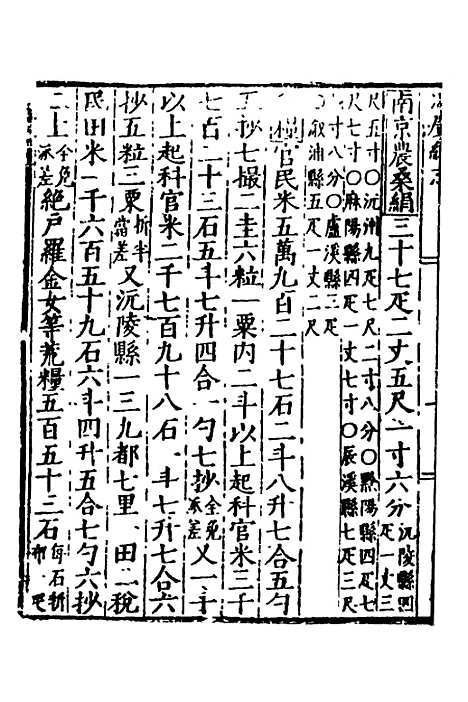 南京農桑絹三十七疋二丈五尺一寸六分沅陵縣四疋一丈三
尺五寸〇沅州九疋七尺二寸八分〇黔陽縣四疋七
尺七寸〇麻陽縣四疋一丈七寸〇辰溪縣七疋三尺
寸八分〇盧溪縣三疋
溆浦縣五疋一丈二尺
糧官民米五萬九百二十七石二斗八升七合五勺
抄七撮二圭六粒一粟內二斗以上起科官米三千
七百二十三石五斗七升四合一勺七抄全免派差又一斗
以上起科官米二千七百九十八石斗七升七合六
抄五粒三粟折半當差又沅陵縣一三九都七里田稅
民田米一千六百五十九石六斗四升五合七勺六抄
上全免派差絶戶羅金女等荒糧五百五十三石每石折